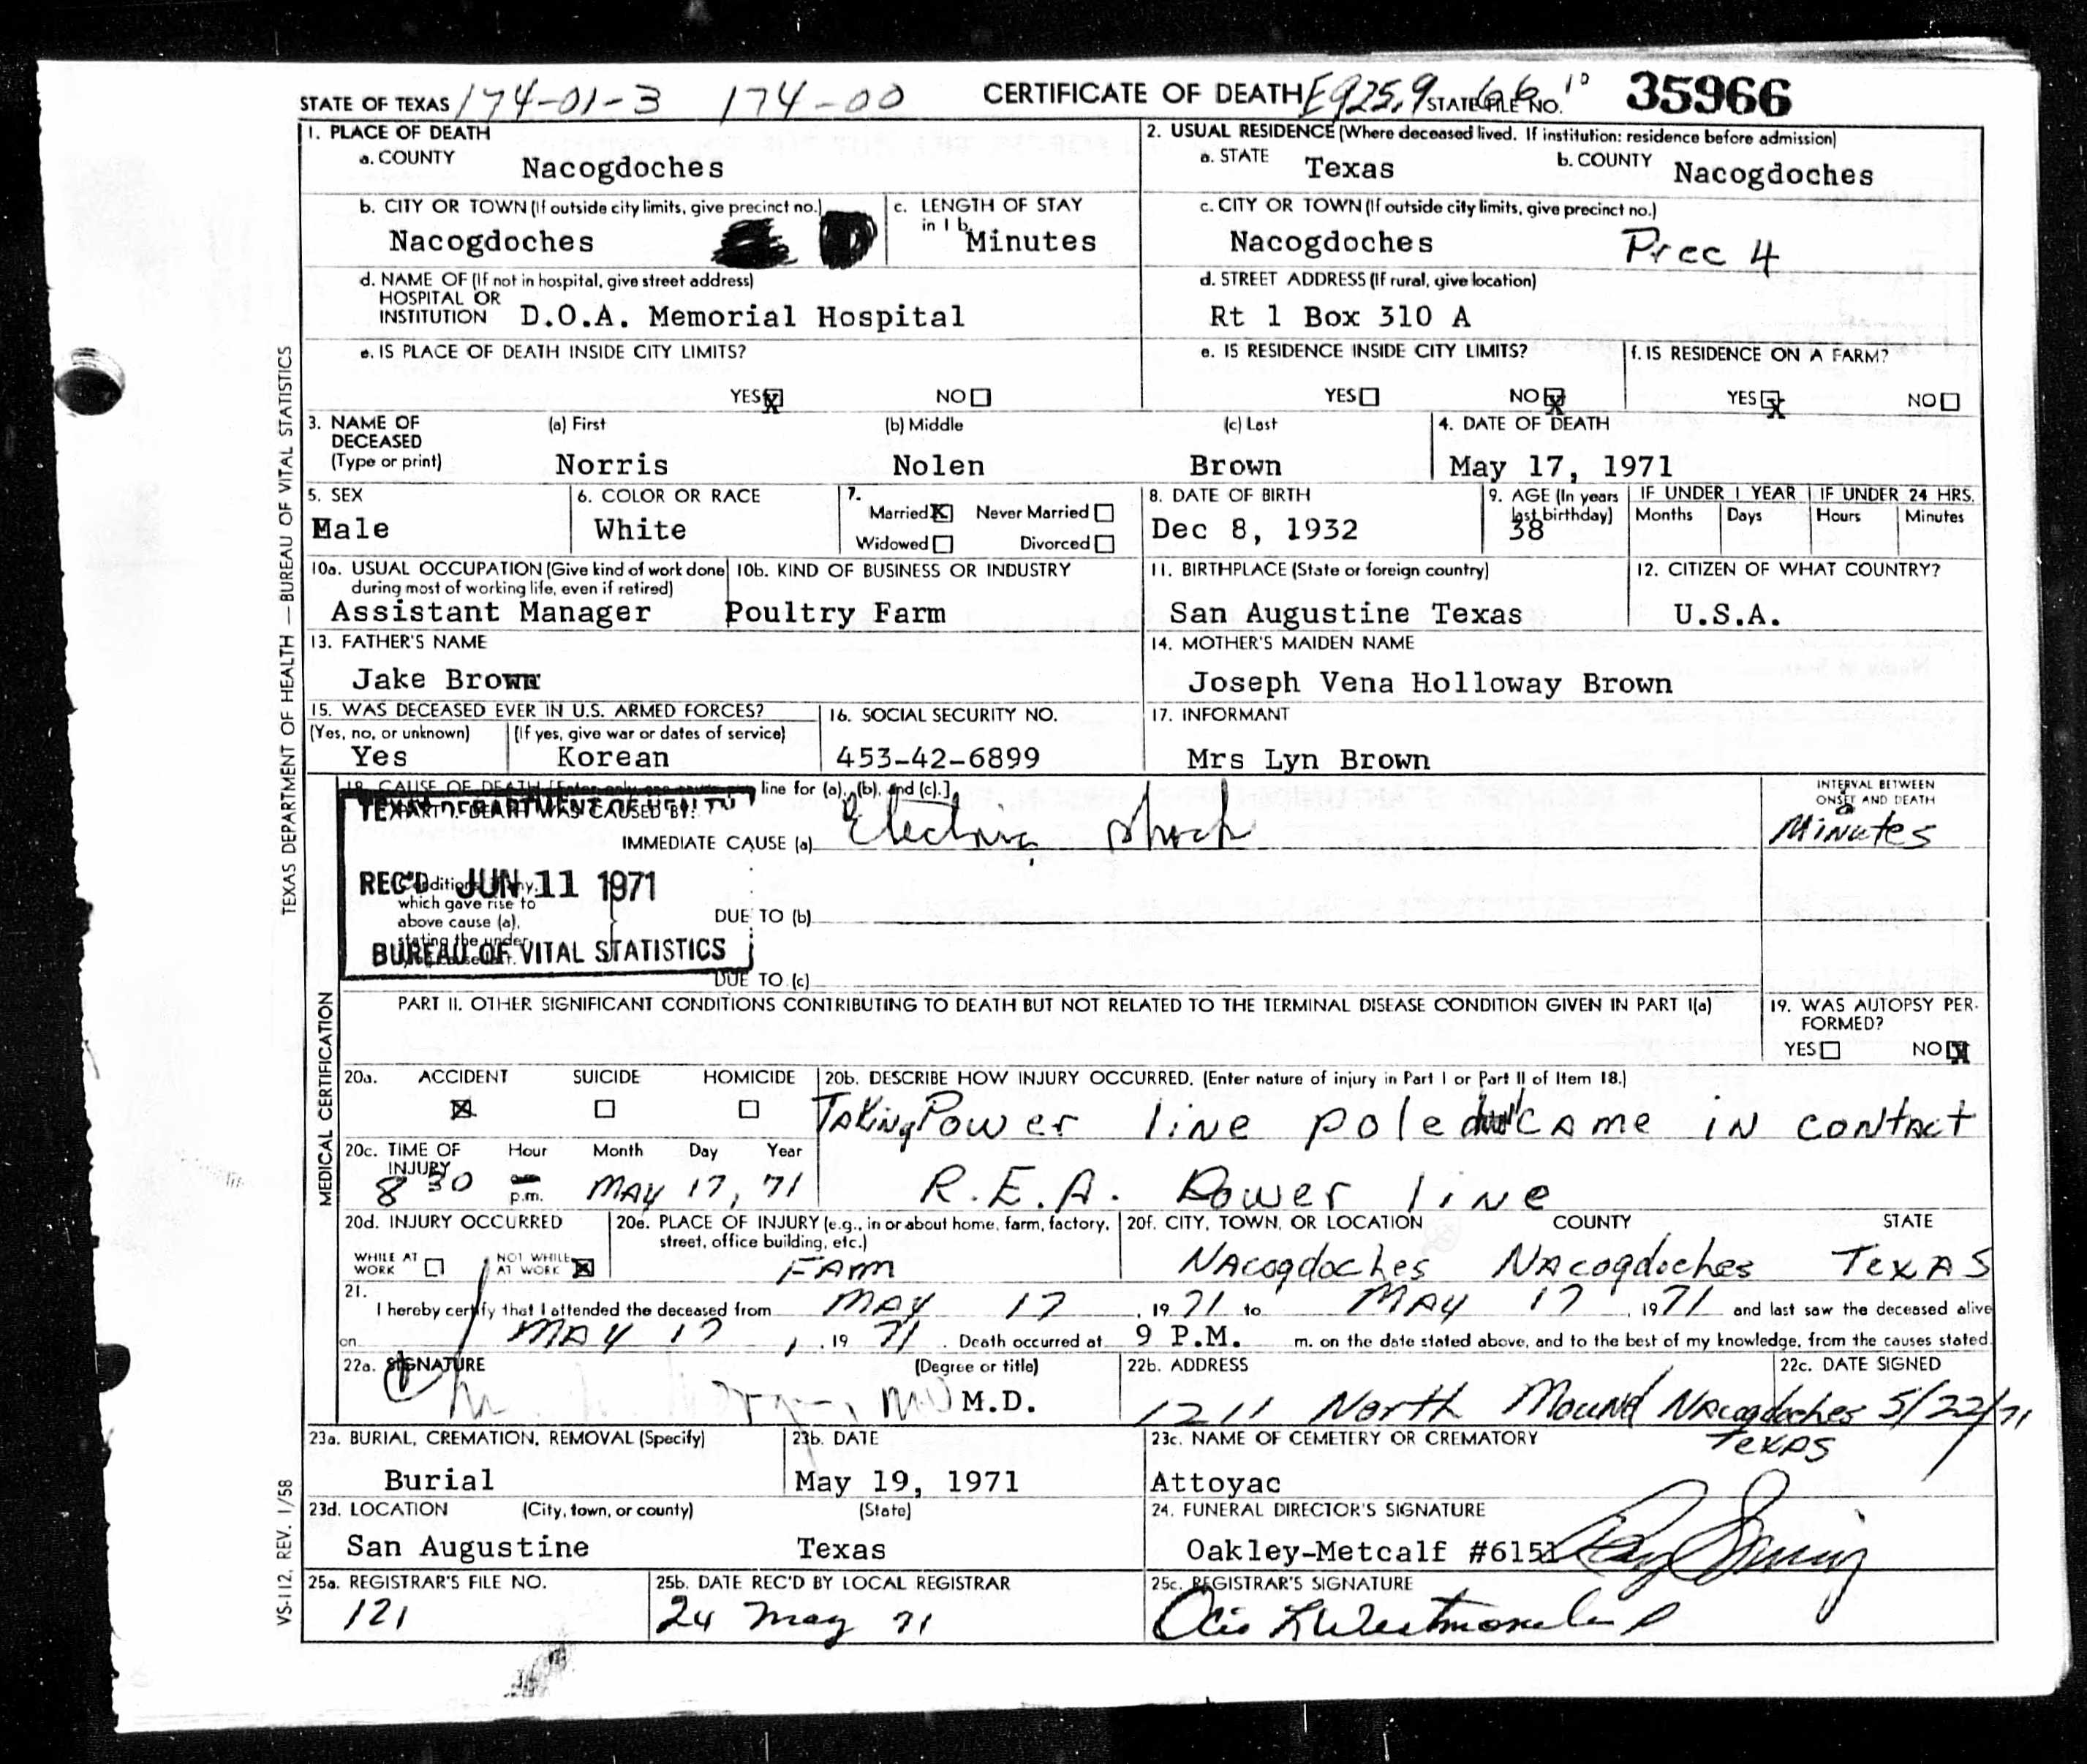 STATE OF TEXAS 174-01-3 174-00 CERTIFICATE OF DEATH E925.9 STATE FILE NO. 35966
1. PLACE OF DEATH
a. COUNTY Nacogdoches
2. USUAL RESIDENCE (Where deceased lived. If institution: residence before admission)
a. STATE Texas b. COUNTY Nacogdoches
b. CITY OR TOWN (If outside city limits, give precinct no.)
Nacogdoches
c. LENGTH OF STAY
in 1 b.
Minutes
c. CITY OR TOWN (If outside city limits, give precinct no.)
Nacogdoches Prec 4
d. NAME OF (If not in hospital, give street address)
HOSPITAL OR
INSTITUTION D.O.A. Memorial Hospital
d. STREET ADDRESS (If rural, give location)
Rt 1 Box 310 A
e. IS PLACE OF DEATH INSIDE CITY LIMITS?
YES X NO
e. IS RESIDENCE INSIDE CITY LIMITS?
YES NO X
f. IS RESIDENCE ON A FARM?
YES X NO
3. NAME OF
DECEASED
(Type or print)
(a) First (b) Middle (c) Last
Norris Nolen Brown
4. DATE OF DEATH
May 17, 1971
5. SEX
Male
6. COLOR OR RACE
White
7.
Married X Never Married
Widowed Divorced
8. DATE OF BIRTH
Dec 8, 1932
9. AGE (In years
last birthday)
38
IF UNDER 1 YEAR IF UNDER 24 HRS.
Months Days Hours Minutes
10a. USUAL OCCUPATION (Give kind of work done
during most of working life, even if retired)
Assistant Manager
10b. KIND OF BUSINESS OR INDUSTRY
Poultry Farm
11. BIRTHPLACE (State or foreign country)
San Augustine Texas
12. CITIZEN OF WHAT COUNTRY?
U.S.A.
13. FATHER'S NAME
Jake Brown
14. MOTHER'S MAIDEN NAME
Joseph Vena Holloway Brown
15. WAS DECEASED EVER IN U.S. ARMED FORCES?
(Yes, no, or unknown) (If yes, give war or dates of service)
Yes Korean
16. SOCIAL SECURITY NO.
453-42-6899
17. INFORMANT
Mrs Lyn Brown
18. CAUSE OF DEATH [Enter only one cause per line for (a), (b), and (c).]
PART I. DEATH WAS CAUSED BY:
IMMEDIATE CAUSE (a) Electric shock
INTERVAL BETWEEN
ONSET AND DEATH
Minutes
REC'D JUN 11 1971
BUREAU OF VITAL STATISTICS
which gave rise to
above cause (a),
stating the under-
DUE TO (b)
DUE TO (c)
PART II. OTHER SIGNIFICANT CONDITIONS CONTRIBUTING TO DEATH BUT NOT RELATED TO THE TERMINAL DISEASE CONDITION GIVEN IN PART I(a)
19. WAS AUTOPSY PER-
FORMED?
YES NO X
20a. ACCIDENT SUICIDE HOMICIDE
X
20b. DESCRIBE HOW INJURY OCCURRED. (Enter nature of injury in Part I or Part II of Item 18.)
Taking Power line pole came in contact
R.E.A. Power line
20c. TIME OF
INJURY
Hour Month Day Year
8 30 p.m. May 17, 71
20d. INJURY OCCURRED
WHILE AT
WORK
NOT WHILE
AT WORK X
20e. PLACE OF INJURY (e.g., in or about home, farm, factory,
street, office building, etc.)
FArm
20f. CITY, TOWN, OR LOCATION COUNTY STATE
Nacogdoches Nacogdoches Texas
21.
I hereby certify that I attended the deceased from May 17, 1971 to May 17, 1971 and last saw the deceased alive
on May 17, 1971. Death occurred at 9 P.M. m. on the date stated above, and to the best of my knowledge, from the causes stated.
22a. SIGNATURE (Degree or title)
M.D.
22b. ADDRESS
1211 North Mound Nacogdoches
Texas
22c. DATE SIGNED
5/22/71
23a. BURIAL, CREMATION, REMOVAL (Specify)
Burial
23b. DATE
May 19, 1971
23c. NAME OF CEMETERY OR CREMATORY
Attoyac
23d. LOCATION (City, town, or county) (State)
San Augustine Texas
24. FUNERAL DIRECTOR'S SIGNATURE
Oakley-Metcalf #6151
25a. REGISTRAR'S FILE NO.
121
25b. DATE REC'D BY LOCAL REGISTRAR
24 May 71
25c. REGISTRAR'S SIGNATURE
TEXAS DEPARTMENT OF HEALTH — BUREAU OF VITAL STATISTICS
MEDICAL CERTIFICATION
VS-112, REV. 1/58